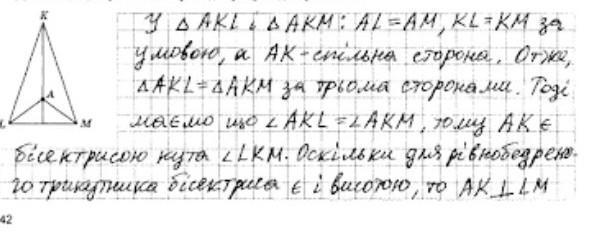 K
A
L
M
У △ AKL і △ AKM: AL = AM, KL = KM за
умовою, а AK - спільна сторона. Отже,
△AKL = △AKM за трьома сторонами. Тоді
маємо що ∠AKL = ∠AKM, тому AK є
бісектрисою кута ∠LKM. Оскільки для рівнобедрено-
го трикутника бісектриса є і висотою, то AK ⊥ LM
42